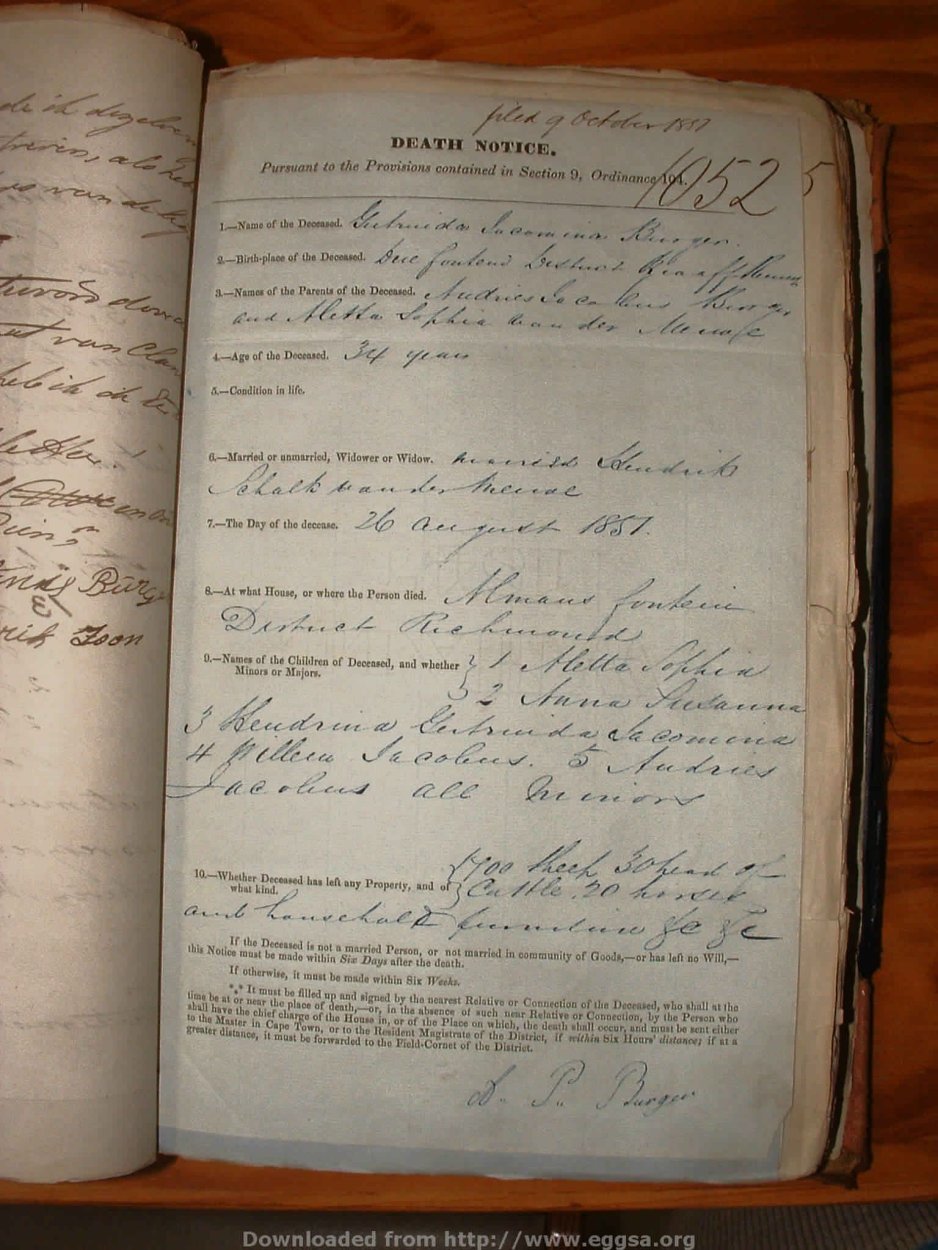 de ik
als
van de
van
heb ik de
Burge
filed 9 October 1857
DEATH NOTICE.
Pursuant to the Provisions contained in Section 9, Ordinance 104.
10525
1.—Name of the Deceased. Gertruida Jacomina Burger.
2.—Birth-place of the Deceased. Drie fontein District Graaff Reinet
3.—Names of the Parents of the Deceased. Andries Jacobus Burger
and Aletta Sophia van der Merwe
4.—Age of the Deceased. 34 years
5.—Condition in life.
6.—Married or unmarried, Widower or Widow. married Hendrik
Schalk van der Merwe
7.—The Day of the decease. 26 august 1857.
8.—At what House, or where the Person died. fontein
District Richmond
9.—Names of the Children of Deceased, and whether } 1 Aletta Sophia
Minors or Majors. 2 Anna Susanna
3 Hendrina Gertruida Jacomina
4 Willem Jacobus. 5 Andries
Jacobus all Minors
10.—Whether Deceased has left any Property, and of } 700 sheep 30 head of
what kind. Cattle 20 horses
and household furniture &c &c
If the Deceased is not a married Person, or not married in community of Goods,—or has left no Will,—
this Notice must be made within Six Days after the death.
If otherwise, it must be made within Six Weeks.
*** It must be filled up and signed by the nearest Relative or Connection of the Deceased, who shall at the
time be at or near the place of death,—or, in the absence of such near Relative or Connection, by the Person who
shall have the chief charge of the House in, or of the Place on which, the death shall occur, and must be sent either
to the Master in Cape Town, or to the Resident Magistrate of the District, if within Six Hours' distance; if at a
greater distance, it must be forwarded to the Field-Cornet of the District.
P. Burger
Downloaded from http://www.eggsa.org